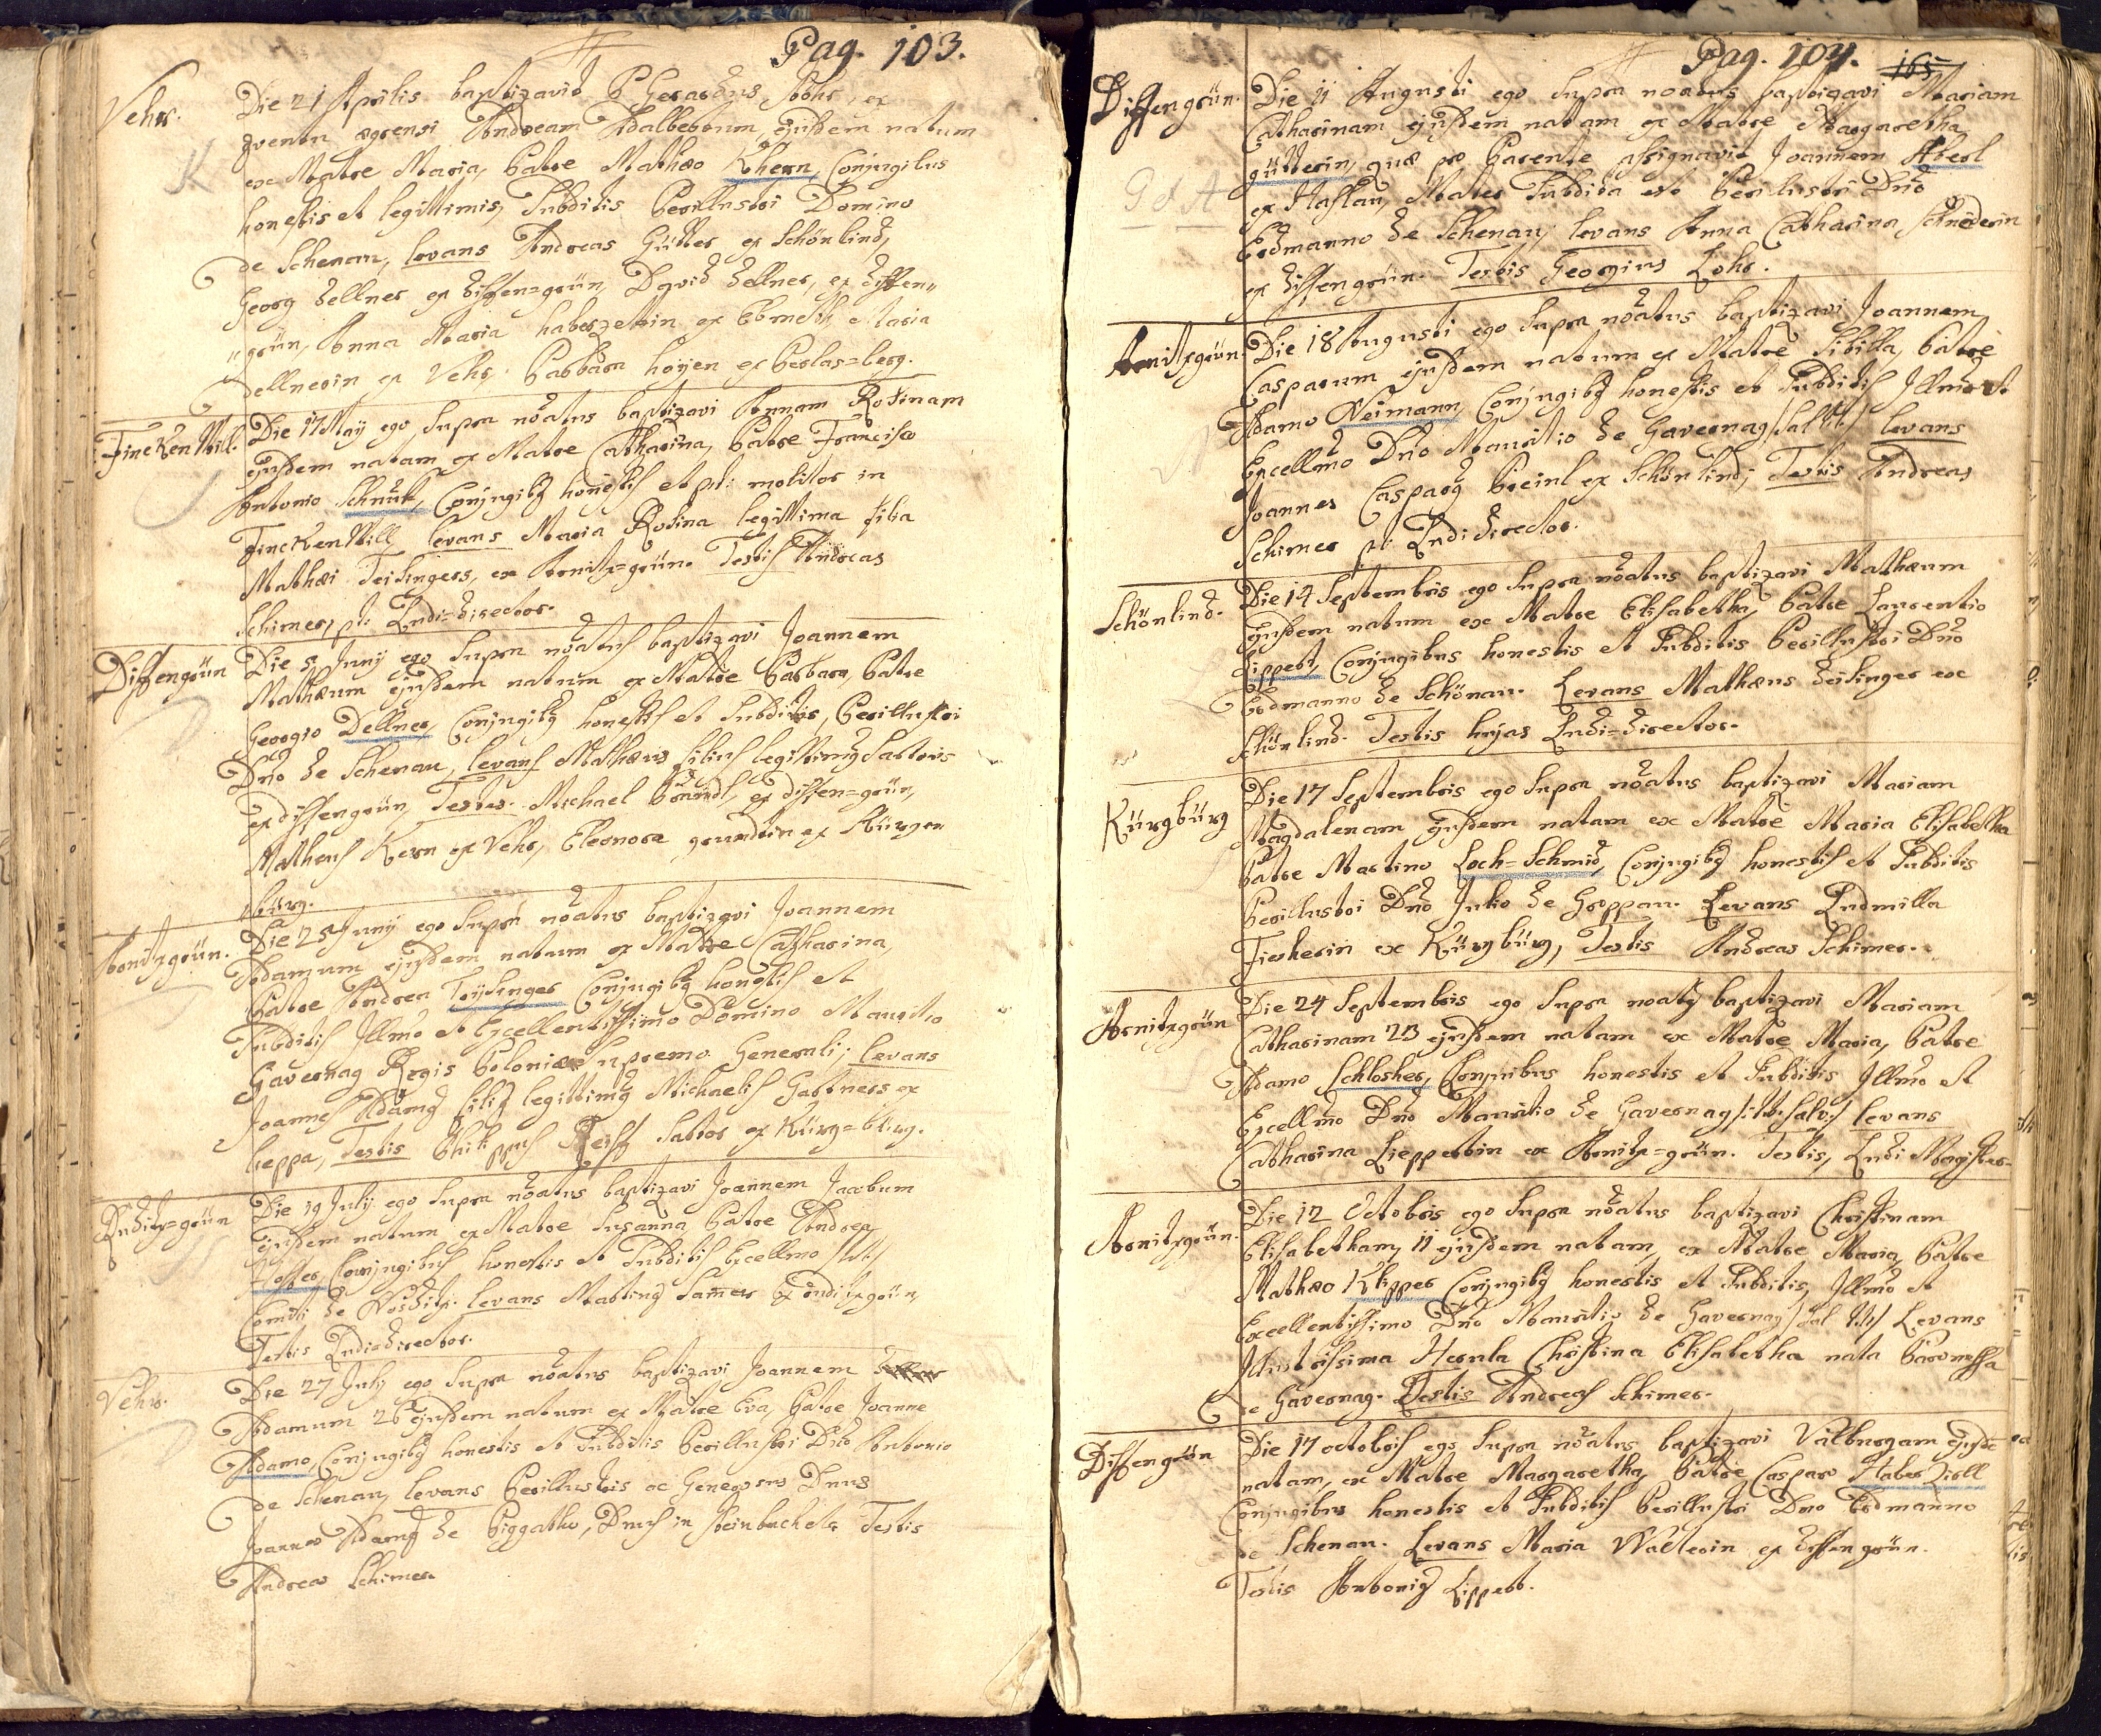 Pag. 103.
Vehr.
Die 21 Aprilis baptizavit P. Gerardus
Andream Adalbertum, ejusdem natum
ex Matre Maria, Patre Mathæo Khern, Conjugibus
honestis et legittimis, Subditis Perillustri Domino
de Schenau, levans Andreas Gütter ex Schönlind,
Georg Dellner ex Dissen=grün, David Dellner, ex Dissen„
„grün, Anna Maria haberzettin ex Maria
Dellnerin ex Vehr. Barbara ex
FinckenMill.
Die 17 Maÿ ego supra nöatus baptizavi Annam Rosinam
ejusdem natam ex Matre Catharina, Patre Francisco
Antonio Schnuk, Conjugibq honestis et p.t. molitor in
FinckenMill, levans Maria Rosina legittima filia
Mathæi Teisingers, ex Arnitz=grün. Testis Andreas
Schimer, p.t. Ludi=director.
Dissengrün
Die 5 Junÿ ego supra nöatus baptizavi Joannem
Mathæum ejusdem natum ex Matre Barbara, Patre
Georgio Dellner, Conjugibq honestis et Subditis, Perillustri
Dnö de Schenau, levans Mathæus filius legittimq Sartoris
ex dissengrün, Testes. Michael ex dissen=grün,
Matheus Kern ex Vehr, Eleonora ex Kürgen
bürg.
Arnitzgrün.
Die 25 Junÿ ego supra nöatus baptizavi Joannem
Adamum ejusdem natum ex Matre Catharina,
Patre Andrea Teÿsinger Conjugibq honestis et
Subditis Illmo et Excellentissimo Domino Mauritio
Gavernag Regis Poloniæ supremo Generali; levans
Joannes Adamq filiq legittimq Michaelis Gartners ex
Leppa, Testis Philippus Reiss Sartor ex Kürg=bürg.
Ruditz=grün
Die 19 Julÿ ego supra nöatus baptizavi Joannem Jacobum
ejusdem natum ex Matre Susanna Patre Andrea
Conjugibus honestis et Subditis Excellmo tit.
Comiti de levans Martinq ex
Testis Ludi=director.
Vehr.
Die 27 Julÿ ego supra nöatus baptizavi Joannem
Adamum 26 ejusdem natum ex Matre Eva, Patre Joanne
Adamo, Conjugibq honestis et Subditis Perillustri Dnö Antonio
de Schenau, levans Perillustris ac Generosus Dnus
Joannes Adamq de Testis
Andreas Schimer.
Pag. 104.
Dissengrün.
Die 11 Augusti ego supra nöatus baptizavi Mariam
Catharinam ejusdem natam ex Matre Margaretha
gütterin, quæ pro Parente assignavit Joannem Aberl
ex Haslau, Mater Subdita est Perillustri Dnö
Erdmanno de Schenau, levans Anna Catharina Schneiderin
ex dissengrün. Testis Georgius Lohr.
G & A
Arnitzgrün.
Die 18 Augusti ego supra nöatus baptizavi Joannem
Casparum ejusdem natum ex Matre Sibilla, Patre
Adamo Neimann, Conjugibq honestis et Subditis Illmo et
Excellmo Dnö Mauritio de Gavernag levans
Joannes Casparq ex Schönlind; Testis Andreas
Schimer p.t. Ludi director.
Schönlind.
Die 14 Septembris ego supra nöatus baptizavi Mathæum
ejusdem natum ex Matre Elisabetha, Patre Laurentio
Lippert, Conjugibus honestis et Subditis Perillustri Dnö
Erdmanno de Schönau. Levans Mathæus Deisinger ex
Schönlind. Testis hujas Ludi=director.
Kürgbürg
Die 17 Septembris ego supra nöatus baptizavi Mariam
Magdalenam ejusdem natam ex Matre Maria Elisabetha
Patre Martino Loch=Schmid, Conjugibq honestis et Subditis
Perillustri Dnö Julio de Levans Ludmilla
Fischerin ex Kürgbürg, Testis Andreas Schimer.
Arnitzgrün
Die 24 Septembris ego supra noatq baptizavi Mariam
Catharinam 23 ejusdem natam ex Matre Maria, Patre
Adamo Schlosher, Conjuibus honestis et Subditis Illmo et
Excellmo Dnö Mauritio de Gavernag levans
Catharina Lieppertin ex Arnitz=grün. Testis, Ludi Magister.
Arnitzgrün.
Die 12 Octobris ego supra nöatus baptizavi Christinam
Elisabetham, 11 ejusdem natam, ex Matre Maria, Patre
Mathæo Klipper Conjugibq honestis et Subditis, Illmo et
Excellentissimo Dnö Mauritio de Gavernag Levans
Illustrissima Herula Christina Elisabetha nata Baronessa
de Gavernag. Testis Andreas Schimer.
Dissengrün
Die 17 octobris ego supra nöatus baptizavi Valburgam ejusde
natam, ex Matre Margaretha, Patre Casparo Haberzirll
Conjugibus honestis et Subditis Perillustri Dno Erdmanno
de Schenau. Levans Maria Walterin ex dissengrün.
Testis Antoniq Lippert.